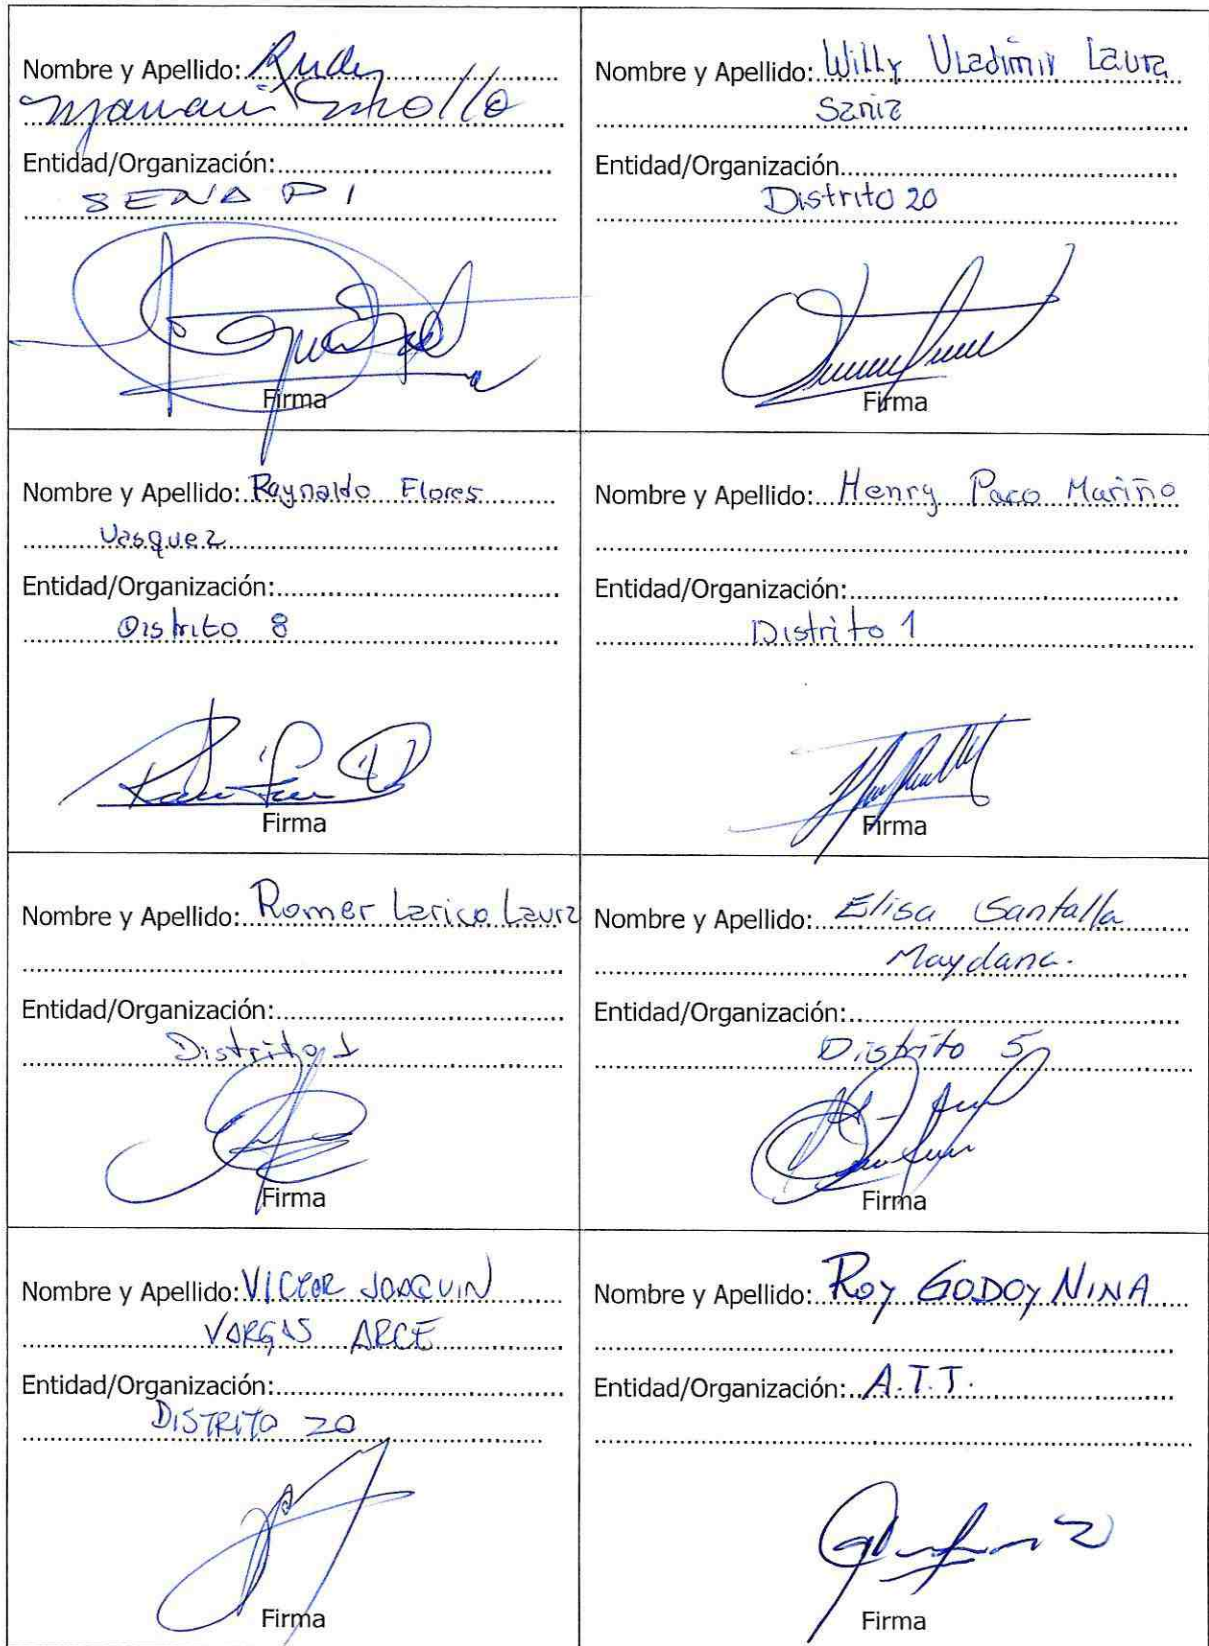 Nombre y Apellido: Rudy
Mamani
Entidad/Organización:
SENAPI
Firma
Nombre y Apellido: Willy Vladimir Laura
Entidad/Organización
Distrito 20
Firma
Nombre y Apellido: Raynaldo Flores
Vasquez
Entidad/Organización:
Distrito 8
Firma
Nombre y Apellido: Henry Paco Mariño
Entidad/Organización:
Distrito 1
Firma
Nombre y Apellido: Romer Larico Laura
Entidad/Organización:
Distrito 1
Firma
Nombre y Apellido: Elisa Santalla
Maydana.
Entidad/Organización:
Distrito 5
Firma
Nombre y Apellido: VICTOR JOAQUIN
VARGAS ARCE
Entidad/Organización:
DISTRITO 20
Firma
Nombre y Apellido: ROY GODOY NINA
Entidad/Organización: A.T.T.
Firma